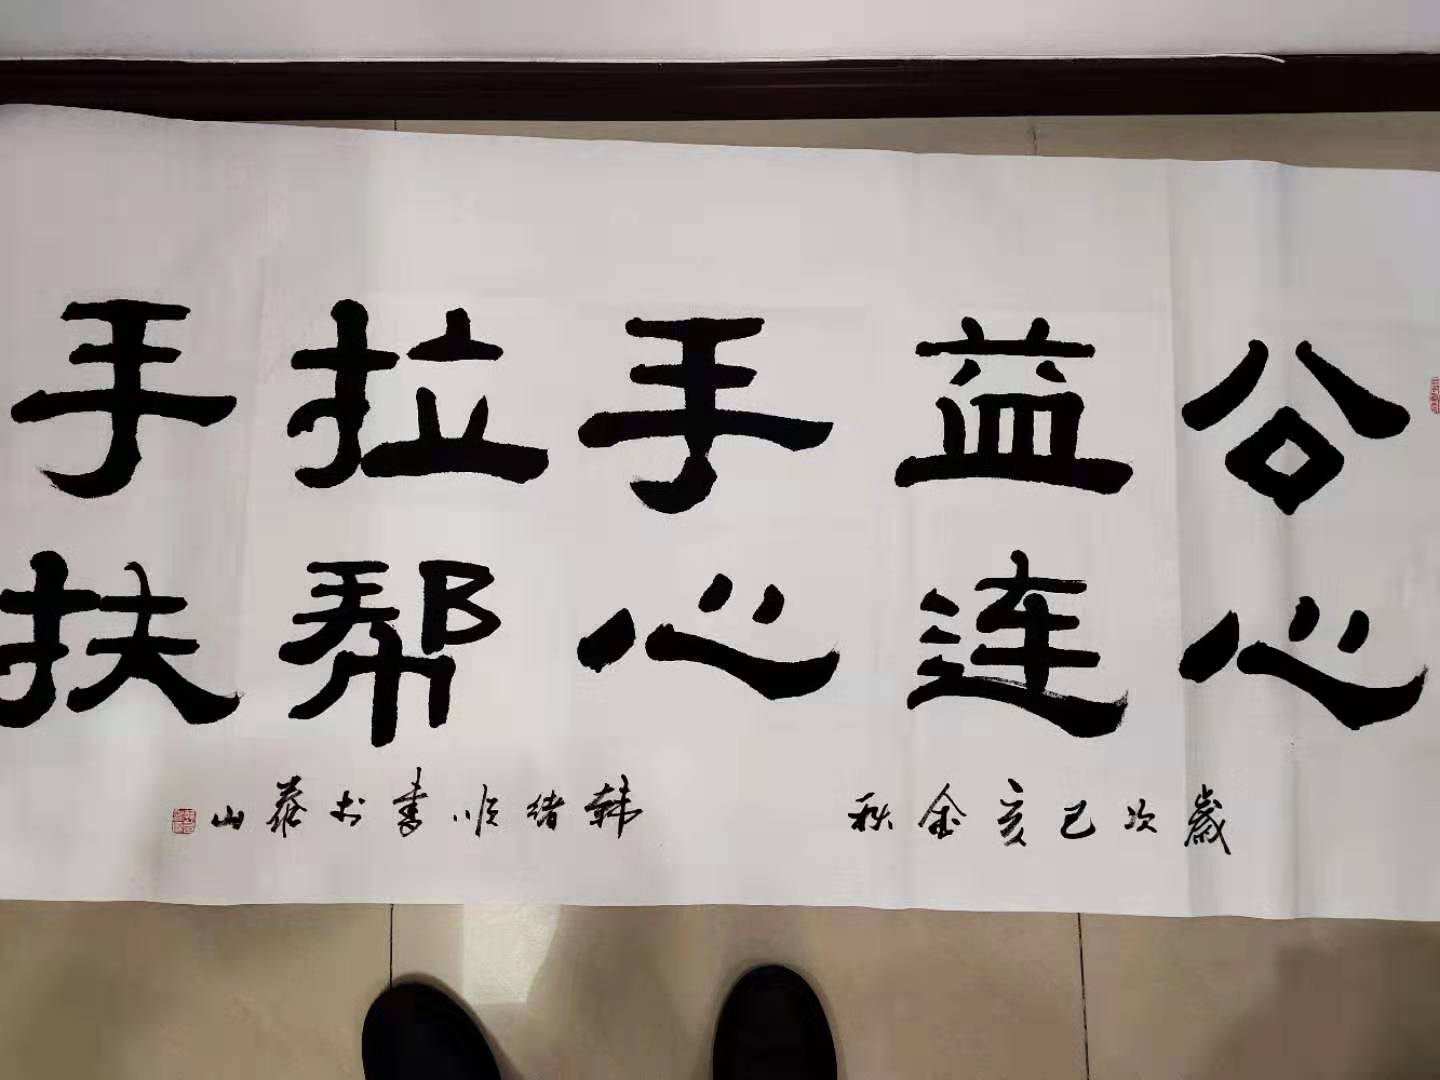 公益手拉手
心连心帮扶
歲次己亥金秋
韩绪顺書于泰山